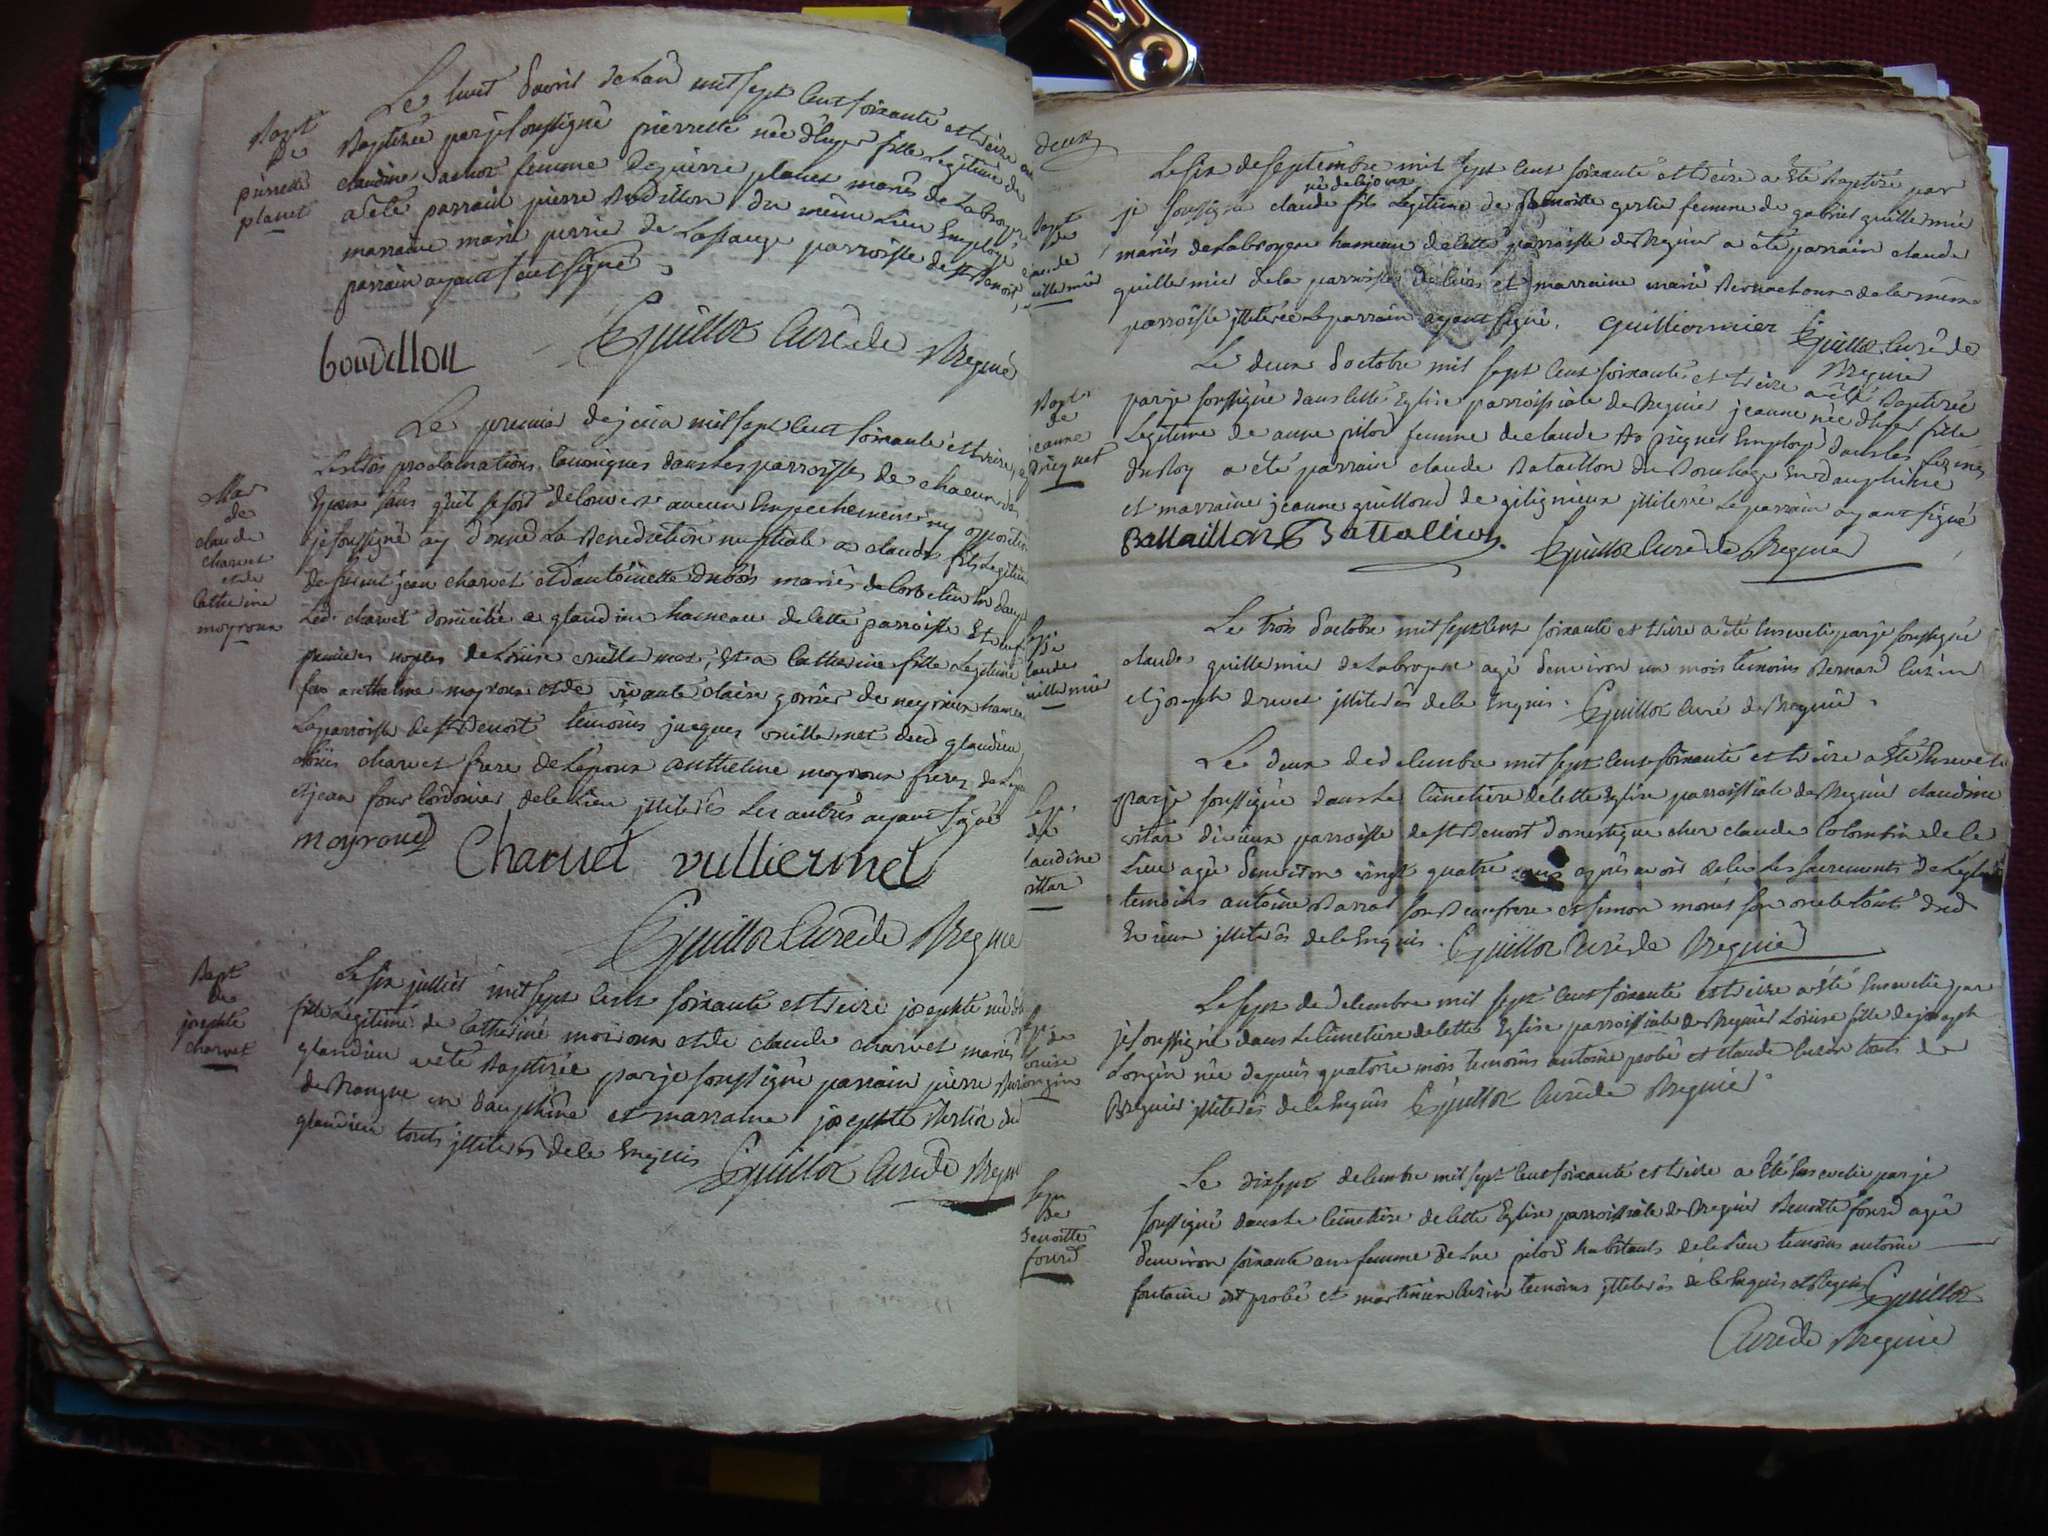 Bapt
de
pierrette
planet
Le huit d'avril de l'an mil sept cent soixante et treize a
Baptisée par je soussigné pierrette née d'hyer fille legitime de
claudine femme de pierre planet mariés de La broyere
a été parrain pierre Bodillon du même Lieu Employé
marraine marie perrin de parroisse de st Benoit
parrain ayant signé
bourdillon
Guilloz Curé de Regnié
Mar
de
claude
charvet
et de
Catherine
moyroux
Le premier de juin mil sept cent soixante et treize, a
Les trois proclamations Canoniques dans les parroisses de chacun des
Epoux sans qu'il se soit découvert aucun Empechement ny opposition
je soussigné ay donné La Benediction nuptiale a claude fils Legitime
de feu jean charvet et d'antoinette dubois mariés de Corbelin En daup
Led. charvet domicilié a glandieu hameau de cette parroisse Et
premieres noples de Louise vuillermet, Et a Catherine fille Legitime
feu anthelme moyroux et de claire de meyrieu hameau
La parroisse de st Benoit temoins jacques vuillermet dud glandieu
Louis charvet frere de L'époux anthelme moyroux frere de L'ep
et jean four Cordonier de ce Lieu jlliterés Les autres ayant signé
moyroud Charvet vulliermet
Guilloz Curé de Regnié
Bapt
de
josephte
charvet
Le six julliet mil sept cent soixante et treize josephte née
fille Legitime de Catherine moiroux et de claude charvet mariés
glandieu a été Baptisée par je soussigné parrain pierre
de en dauphiné et marraine josephte du
glandieu touts jlliterés de ce Enquis
Guilloz Curé de Regn
deux
Bapt
de
claude
uillermié
Le six de septembre mil sept cent soixante et treize a Eté Baptisé par
né de ce jour
je soussigné claude fils Legitime de Benoitte femme de gabriel guillermié
mariés de Labroyere hameau de cette parroisse de Regnier a été parrain claude
guillermier de la parroisse et marraine marie de la même
parroisse jlliterée Le parrain ayant signé. Guilliermier Guilloz Curé de
Regnier
Bapt
de
jeanne
Piequet
Le deux d'octobre mil sept cent soixante et treize a été Baptisée
par je soussigné dans cette Eglise parroissiale de Regnier jeanne née d'hyer fille
Legitime de anne pilod femme de claude Employé dans Les fermes
du Roy a été parrain claude Bataillon du Bouchage En dauphiné
et marraine jeanne guilloud de gilignieux jlliterée Le parrain ayant signé
Battaillon Battallion.
Guilloz Curé de Regnier
Sep
de
laude
uillermié
Le trois d'octobre mil sept cent soixante et treize a été Enseveli par je soussigné
claude guillermier de Labroyere agé d'environ un mois temoins Bernard Cuzin
et joseph drevet jlliterés de ce Enquis. Guilloz Curé de Regnié.
Sep.
de
laudine
vittar
Le deux de decembre mil sept cent soixante et treize a Eté Ensevelie
par je soussigné dans Le Cimetiere de cette Eglise parroissiale de Regnier claudine
vitar parroisse de st Benoit domestique chez claude Colombin de ce
Lieu agée d'environ vingt quatre ans après avoir Les sacrements de L'eglise
temoins antoine Barral son Beaufrere et simon monet son oncle touts dud
jlliterés de ce Enquis. Guilloz Curé de Regnier
Sep. de
Louise
Longin
Le sept de decembre mil sept cent soixante et treize a été Ensevelie par
je soussigné dans Le Cimetiere de cette Eglise parroissiale de Regnier Louise fille de joseph
Longin née depuis quatorze mois temoins antoine probé et claude Cuzin touts de
Bregnier jlliterés de ce Enquis Guilloz Curé de Regnier
Sepu
de
Benoitte
fourd
Le dixsept decembre mil sept cent soixante et treize a Eté Ensevelie par je
soussigné dans Le Cimetiere de cette Eglise parroissiale de Regnier Benoitte fourd agée
d'environ soixante ans femme de Luc pilod habitants de ce Lieu temoins antoine
fontaine dit probé et martinien Cuzin temoins jlliterés de ce Enquis Guilloz
Curé de Regnié